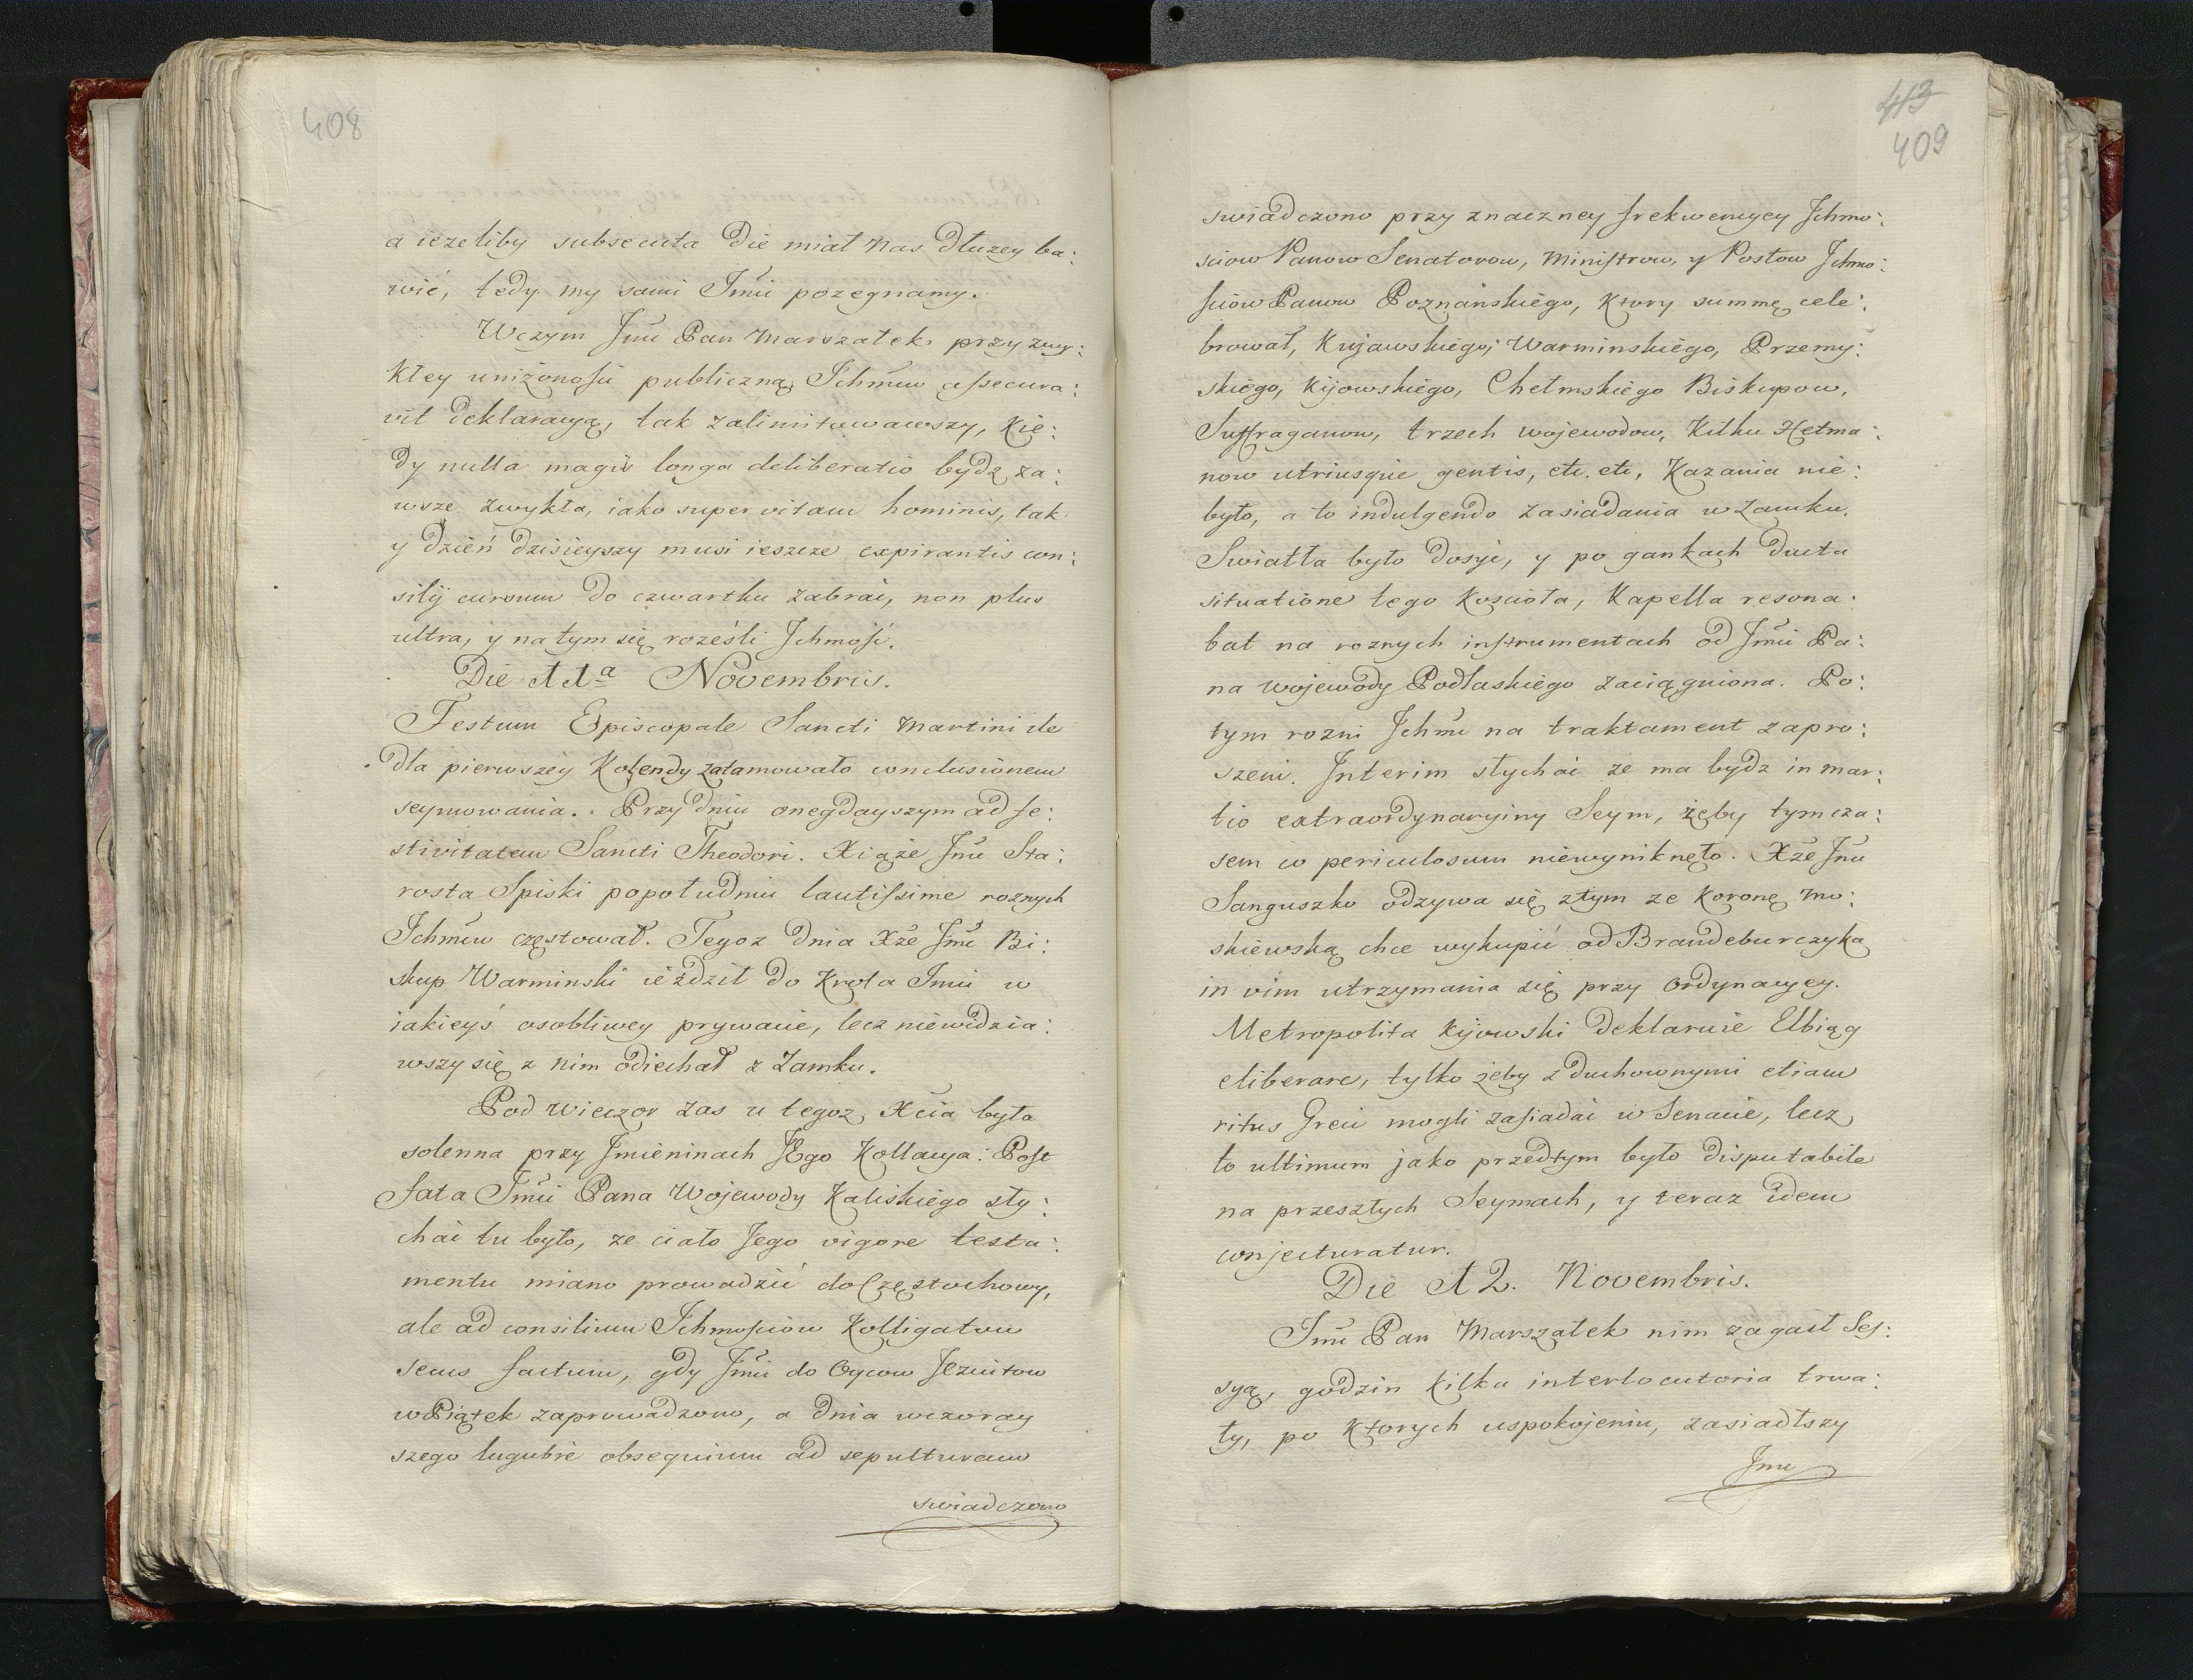 408
a iezeliby subsecuta die miał nas dłuzey ba:
wić, tedy my sami Jmći pozegnamy.
Wczym Jmć Pan Marszałek przy zwy:
kłey uniżonośći publiczną Jchmćiow assecura:
vit deklaracyą, tak zalimitowawszy, kie:
dy nulla magis longa deliberatio bydz za:
wsze zwykła, iako super vitam hominis, tak
y dzień dzisieyszy musi ieszcze expirantis con:
silij cursum do czwartku zabrać, non plus
ultra, y na tym się roześli Jchmość.
Die 11a Novembris.
Festum Episcopale Sancti Martini ile
dla pierwszey Kolendy zatamowało conclusionem
seymowania. Przy dniu onegdayszym ad fe:
stivitatem Sancti Theodori. Xiąże Jmć Sta:
rosta Spiski popołudniu lautissime roznych
Jchmćiow częstował. Tegoz dnia Xże Jmć Bi:
skup Warminski ieździł do Krola Jmći w
iakieyś osobliwey prywacie, lecz niewidzia:
wszy się z nim odiechał z Zamku.
Pod wieczor zas u tegoz Xcia była
solenna przy Jmieninach JEgo Kollacya: Post
fata Jmći Pana Wojewody Kaliskiego sły:
chać tu było, ze ciało Jego vigore testa:
mentu miano prowadzić do Częstochowy,
ale ad consilium Jchmościow Kolligatow
secus factum, gdy Jmći do Oycow Jezuitow
w Piątek zaprowadzono, a dnia wczoray
szego lugubre obsequium ad sepulturam
swiadczono
413
409
swiadczono przy znaczney frekwencyey Jchmo:
sciow Panow Senatorow, Ministrow, y Posłow Jchmo:
sciow Panow Poznańskiego, ktory summę cele:
brował, Kujawskiego, Warminskiego, Przemy:
skiego, Kijowskiego, Chełmskiego Biskupow,
Suffraganow, trzech wojewodow, Kilku Hetma:
now utriusque gentis, etc. etc, Kazania nie:
było, a to indulgendo zasiadania w Zamku.
Swiatła było dosyć, y po gankach ducta
situatione tego Kosciola, Kapella resona:
bat na roznych instrumentach od Jmći Pa:
na wojewody Podlaskiego zaciągniona. Po:
tym rozni Jchmć na traktament zapro:
szeni. Interim słychać ze ma bydz in mar:
tio extraordynaryiny Seym, żeby tym cza:
sem co periculosum niewyniknęło. Xże Jmć
Sanguszko odzywa się z tym ze Koronę Mo:
skiewską chce wykupić od Brandeburczyka
in vim utrzymania się przy ordynacyey.
Metropolita Kijowski deklaruie Elbiąg
eliberare, tylko żeby z duchownymi etiam
ritus Greci mogli zasiadać w Senacie, lecz
to ultimum jako przedtym było disputabile
na przeszłych Seymach, y teraz idem
conjecturatur.
Die 12. Novembris.
Jmć Pan Marszałek nim zagaił Ses:
syą, godzin kilka interlocutoria trwa:
ły, po ktorych uspokojeniu, zasiadłszy
Jmć